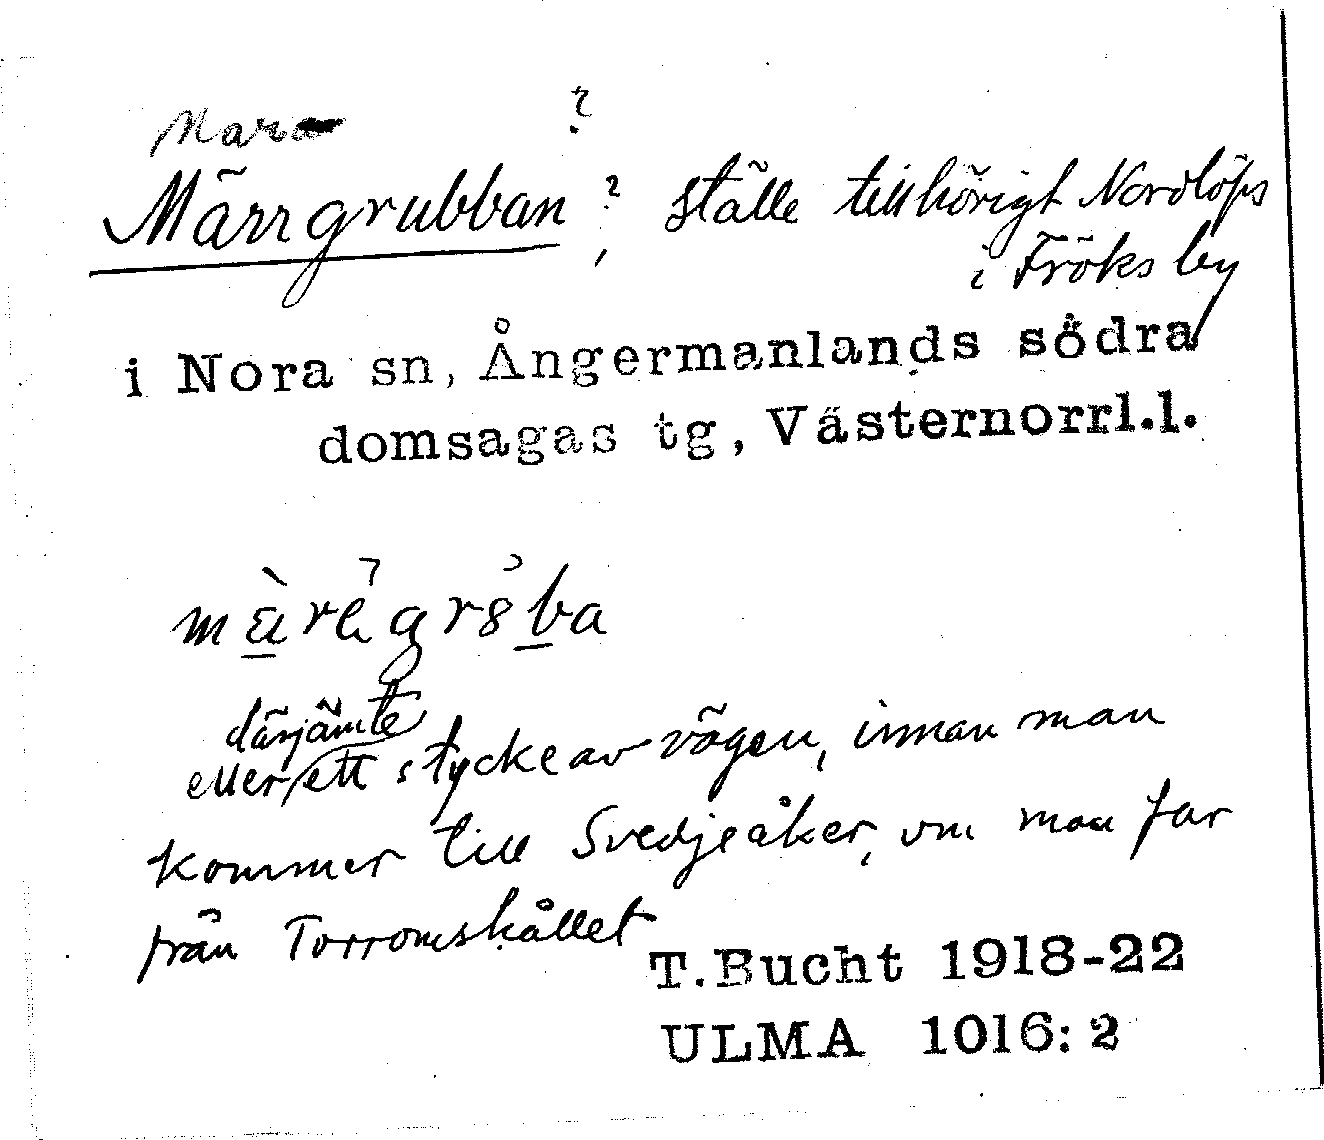 Mara ?
Märrgrubban ?, ställe tillhörigt Nordlöps
i Fröks by
i Nora sn, Ångermanlands södra
domsagas tg, Västernorrl.l.
därjämte
eller ett stycke av vägen, innan man
kommer till Svedjeåker, om man far
från Torromshållet
T.Bucht 1918-22
ULMA 1016:2